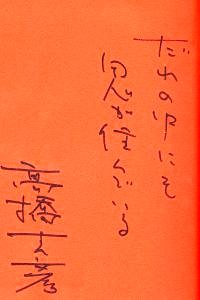 だれの中にも
鬼が住んでいる
高橋克彦